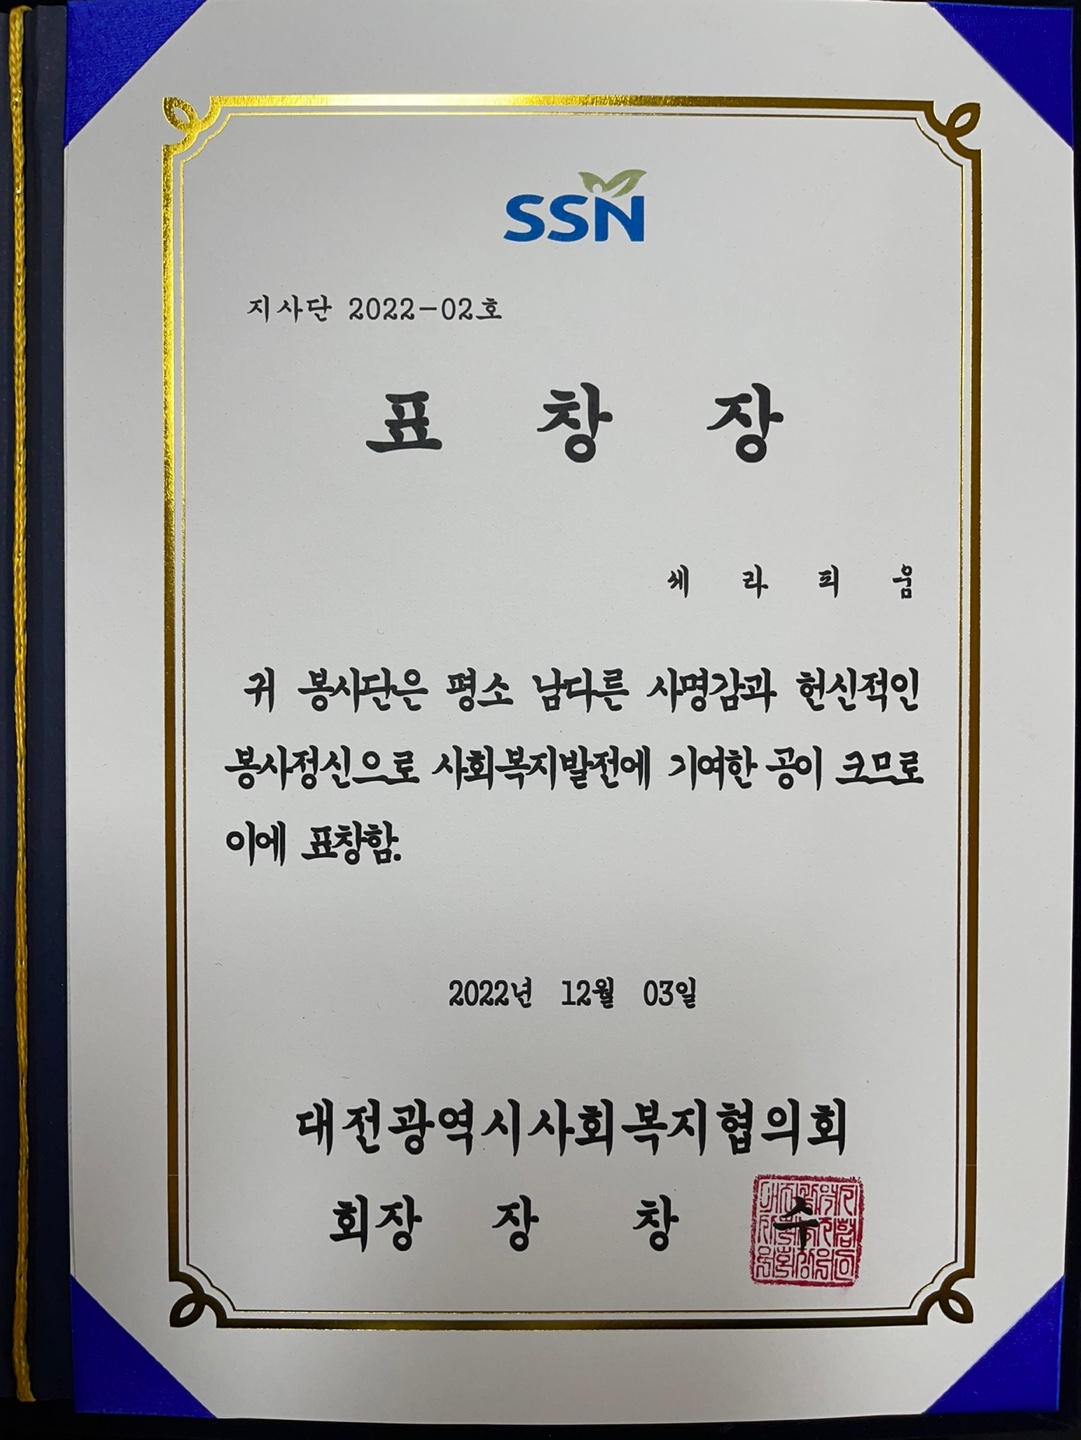 SSN
지사단 2022-02호
표 창 장
쎄 라 피 움
귀 봉사단은 평소 남다른 사명감과 헌신적인
봉사정신으로 사회복지발전에 기여한 공이 크므로
이에 표창함.
2022년 12월 03일
대전광역시사회복지협의회
회장 장 창 수